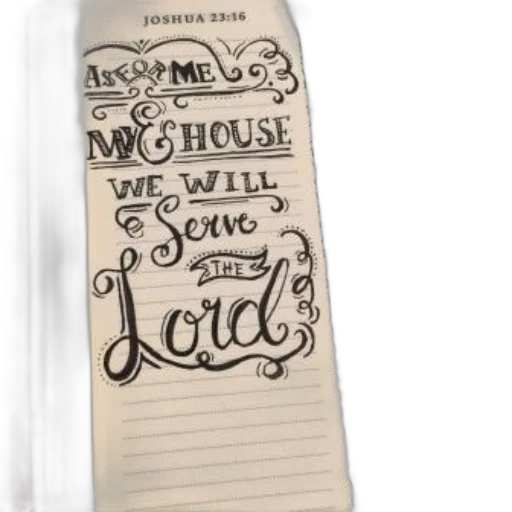 JOSHUA 23:16
AS FOR ME
MY & HOUSE
WE WILL
Serve
THE
Lord